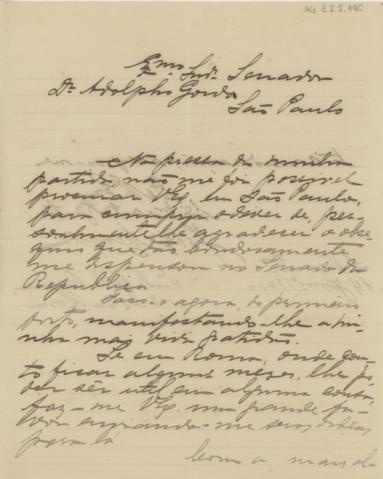 AG 2.2.2.190
Exmo Snr. Senador
Dr. Adolpho Gordo
São Paulo
Na pressa da minha
partida não me foi possivel
procurar V.Ex. em São Paulo,
para cumprir o dever de, pes-
soalmente lhe agradecer o obse-
quio que tão bondosamente
me dispensou no Senado da
Republica.
Faço-o agora, do primeiro
porto, manifestando-lhe a mi-
nha mais viva gratidão.
Se em Roma, onde
fico alguns meses, lhe po-
der ser util em alguma cousa,
faz-me V.Ex. um grande fa-
vor enviando-me suas ordens
para lá
Com a mais al-